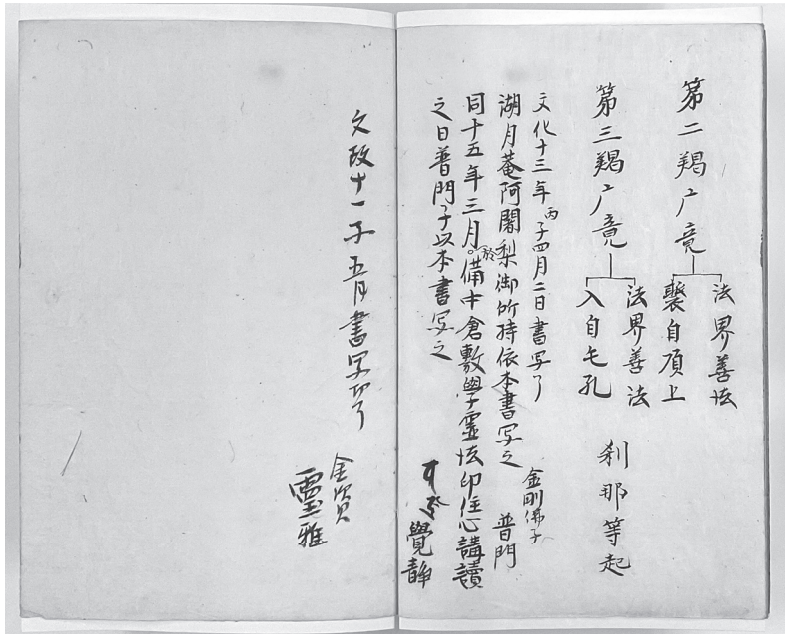 第二羯广竟
法界善法
襲自頂上
第三羯广竟
法界善法
入自毛孔
刹那等起
文化十三年丙子四月二日書写了
金剛佛子
湖月菴阿闍梨御所持依本書写之 普門
同十五年三月。於備中倉敷學霊法印住心講讀
之日普門子以本書写之
覺静
文政十一子五月書写切了
金資
靈雅